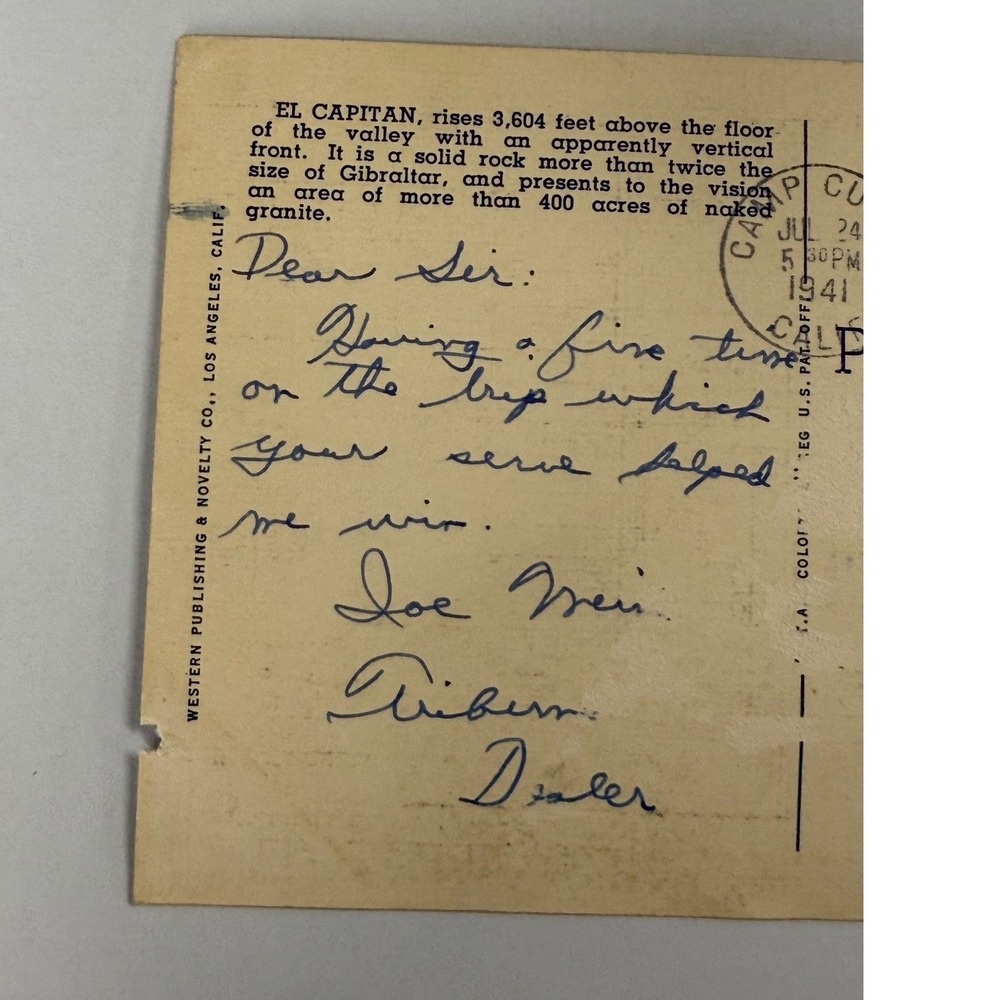 EL CAPITAN, rises 3,604 feet above the floor
of the valley with an apparently vertical
front. It is a solid rock more than twice the
size of Gibraltar, and presents to the vision
an area of more than 400 acres of naked
granite.
Dear Sir:
Having a fine time
on the trip which
your serve helped
me win.
Joe
Dealer
WESTERN PUBLISHING & NOVELTY CO., LOS ANGELES, CALIF.
CAMP CU
JUL 24
5 30 PM
1941
CALIF
P
REG U.S. PAT. OFF.